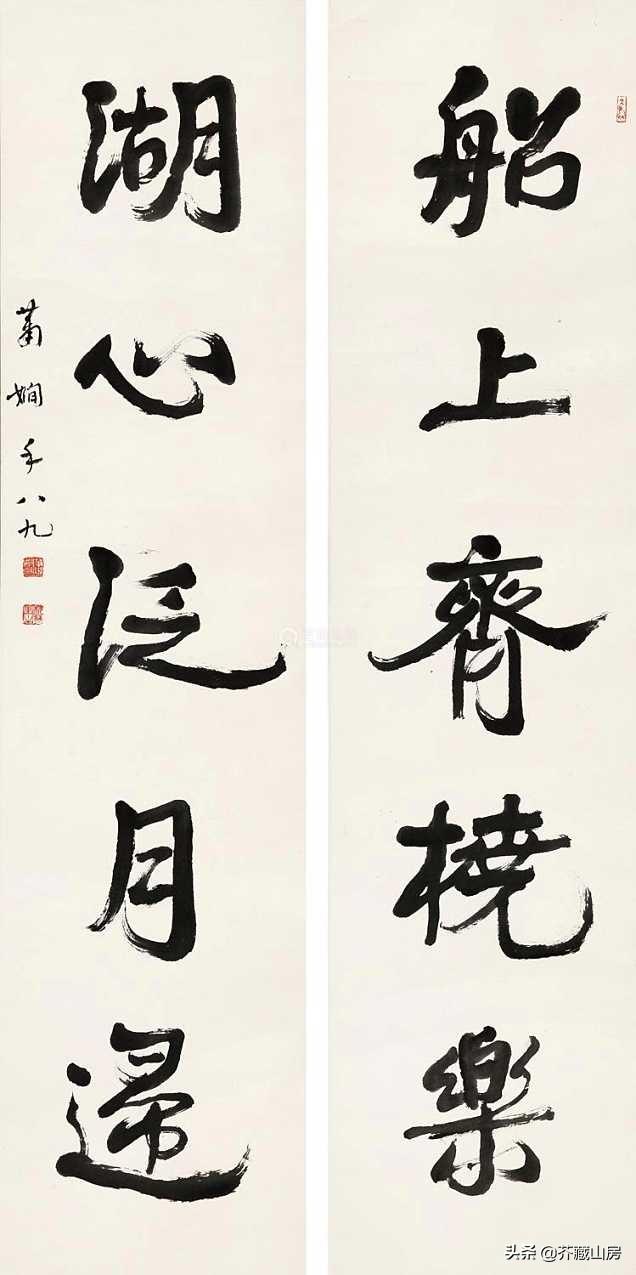 船上齊橈樂
湖心泛月歸
蕭嫻年八九
头条 @芥藏山房